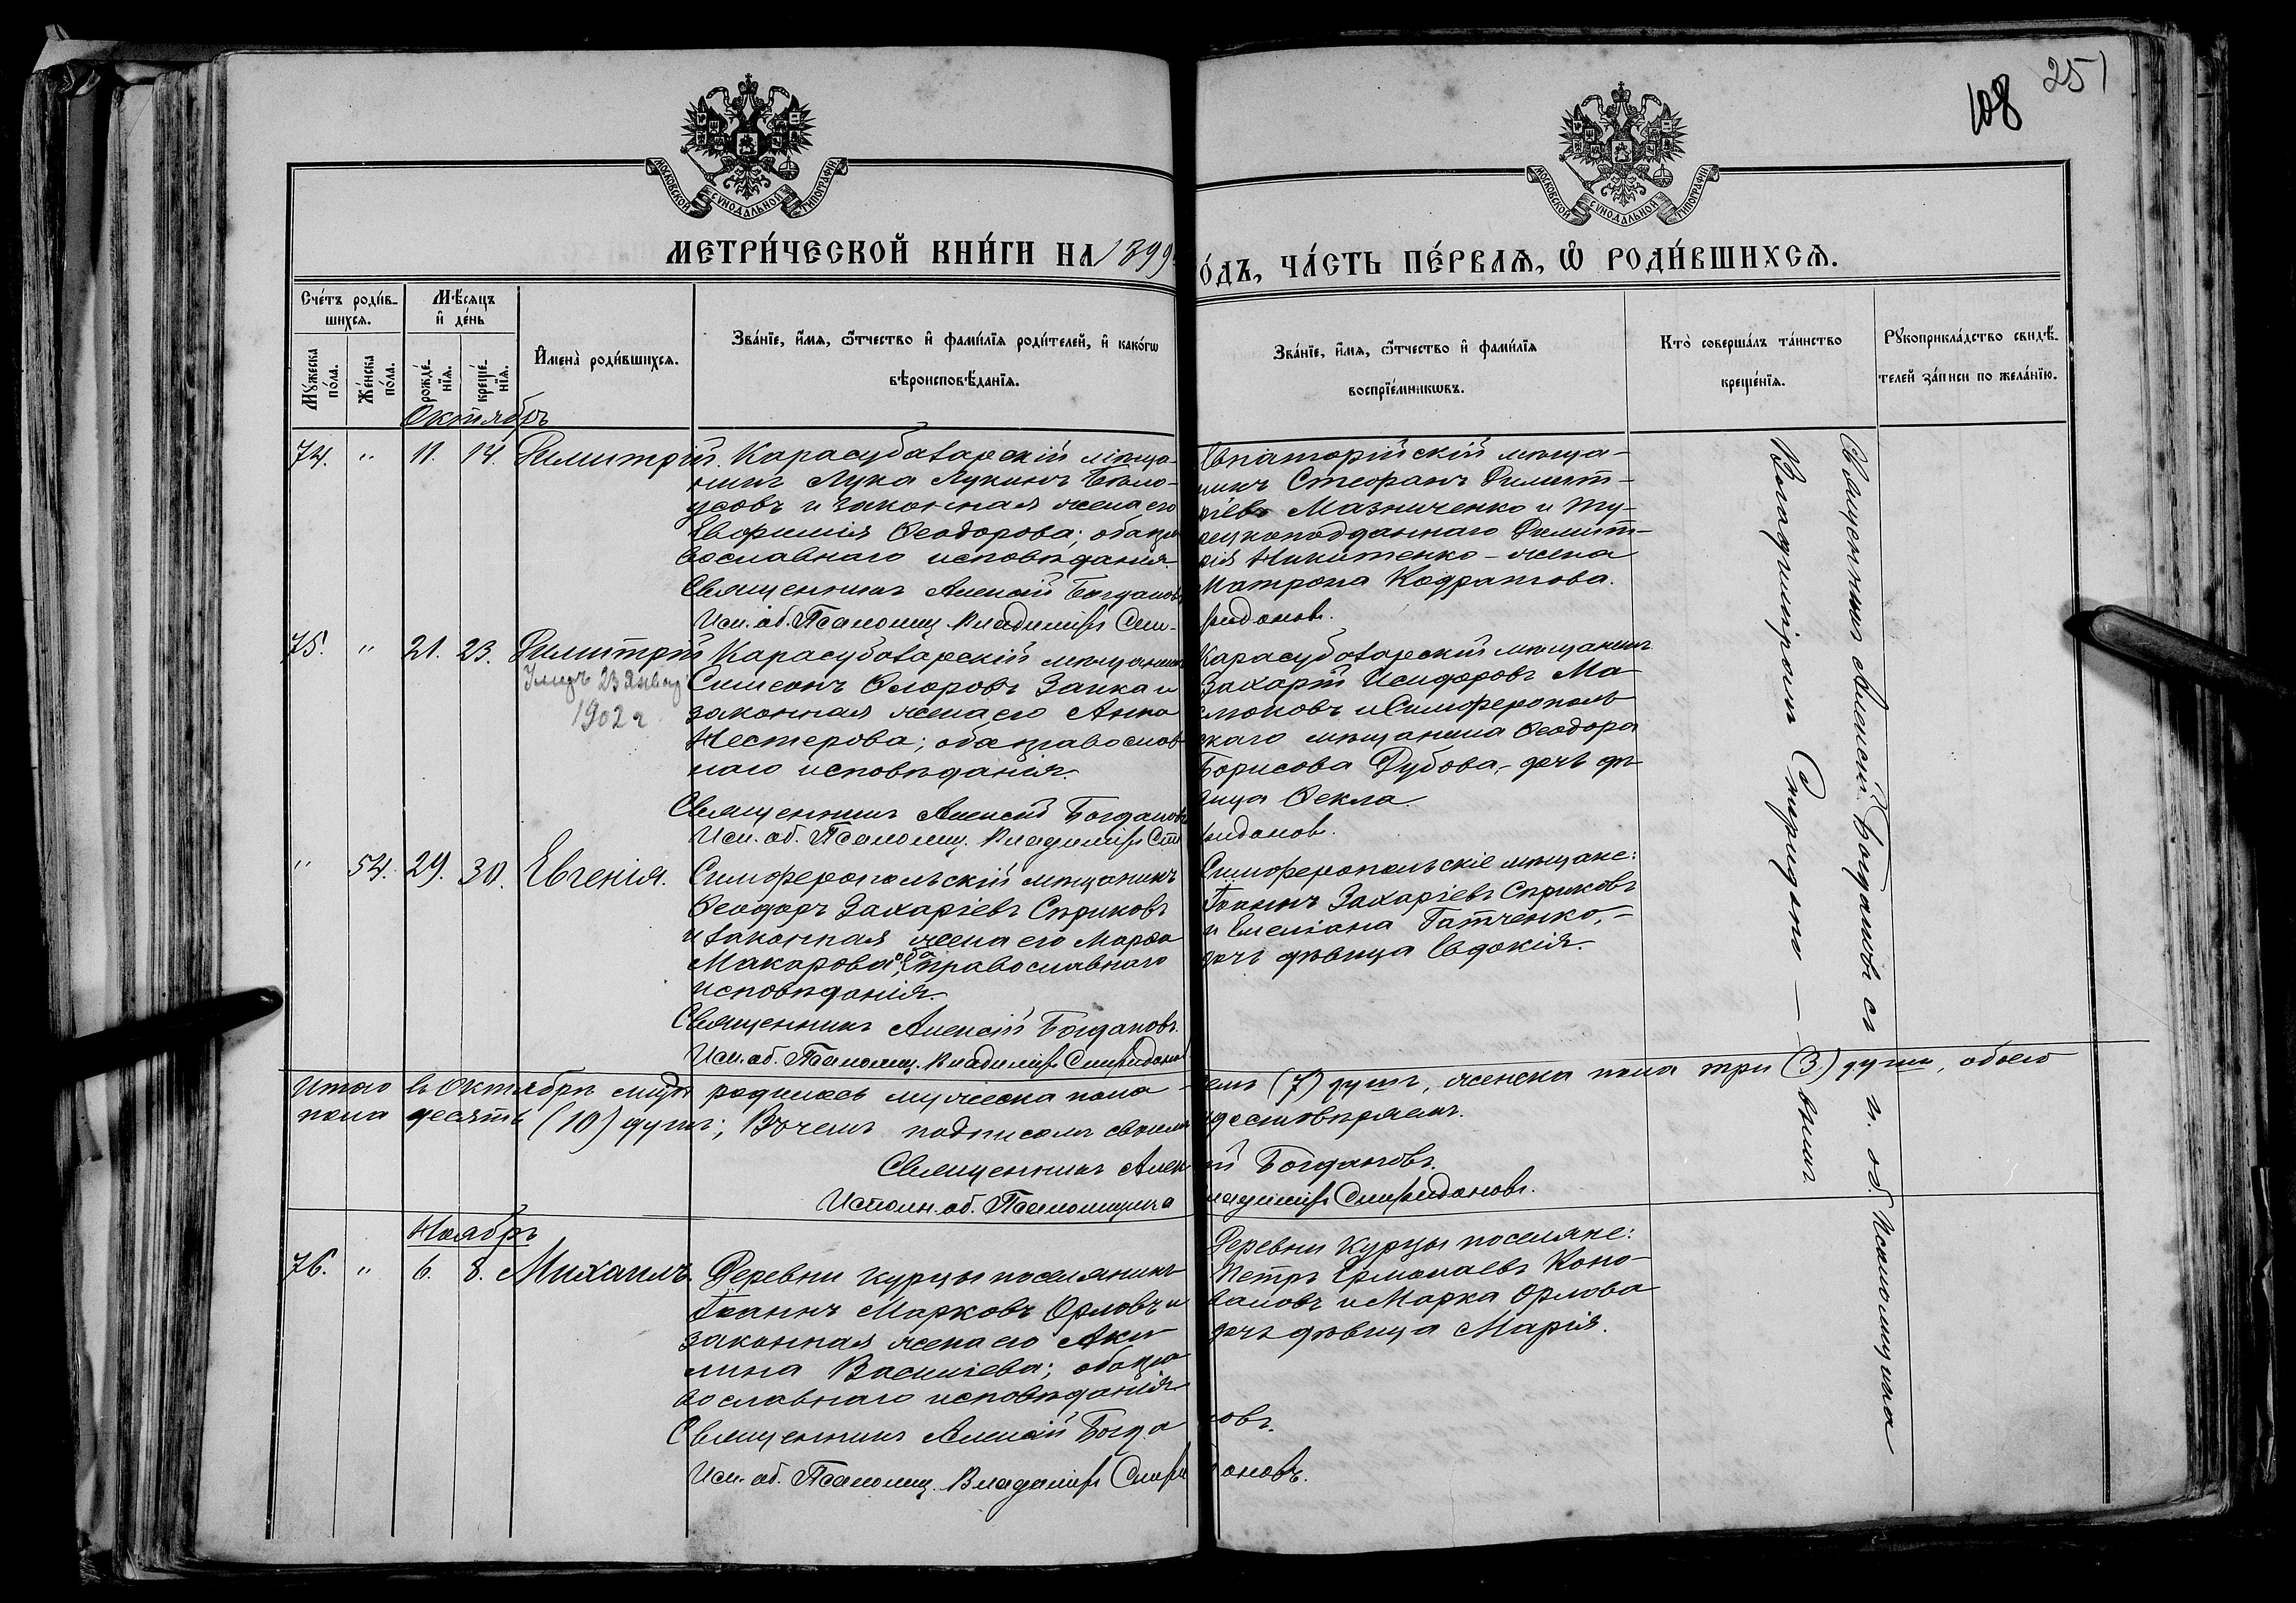 108 251
МОСКОВСКОЙ СѴНОДАЛЬНОЙ ТИПОГРАФІИ
МОСКОВСКОЙ СѴНОДАЛЬНОЙ ТИПОГРАФІИ
МЕТРИ́ЧЕСКОЙ КНИ́ГИ НА 1899
О́ДЪ, ЧА́СТЬ ПЕ́РВАѦ, Ѡ҆ РОДИ́ВШИХСѦ.
Сче́тъ роди́в-
шихсѧ.
Мꙋ́жеска по́ла.
Же́нска по́ла.
Мѣ́сѧцъ
и҆ де́нь
рожде́-
нїѧ.
креще́-
нїѧ.
И҆мена̀ роди́вшихсѧ.
Зва́нїе, и҆́мѧ, ѻ҆́тчество и҆ фами́лїѧ роди́телей, и҆ како́гѡ
вѣроисповѣ́данїѧ.
Зва́нїе, и҆́мѧ, ѻ҆́тчество и҆ фами́лїѧ
воспрїе́мникѡвъ.
Кто̀ соверша́лъ та́инство
креще́нїѧ.
Рꙋкоприкла́дство свидѣ́-
телей за́писи по жела́нїю.
Октябрь
74. " 11. 14. Димитрій.
Карасубазарскій мѣща-
нинъ Лука Лукинъ Бѣло-
усовъ и законная жена его
Евфимія Ѳеодорова; оба пра
вославнаго исповѣданія.
Священникъ Алексій Богдановъ
Исп. об. Псаломщ. Владиміръ Спи-
ридоновъ.
Евпаторійскій мѣща-
нинъ Стефанъ Димит-
ріевъ Мазниченко и Ту-
рецкоподданнаго Димит-
рія Никитенко - жена
Матрона Кодратова.
75. " 21. 23. Димитрій
Умеръ 23 Январ
1902 г
Карасубазарскій мѣщанинъ
Симеонъ Флоровъ Заика и
законная жена его Анна
Нестерова; оба православ
наго исповѣданія.
Священникъ Алексій Богдановъ
Исп. об. Псаломщ. Владиміръ Спи
ридоновъ.
Карасубазарскій мѣщанинъ
Захарій Исидоровъ Ма-
слюковъ и Симферополь
скаго мѣщанина Ѳеодора
Борисова Дубова, - дочь дѣ
вица Ѳекла
" 54. 29. 30. Евгенія.
Симферопольскій мѣщанинъ
Ѳеодоръ Захаріевъ Сприковъ
и законная жена его Марѳа
Макарова; оба православнаго
исповѣданія.
Священникъ Алексій Богдановъ.
Исп. об. Псаломщ. Владиміръ Спиридоновъ
Симферопольскіе мѣщане:
Іоаннъ Захаріевъ Сприковъ
и Емеліана Гатченко, -
дочь дѣвица Евдокія.
Итого въ Октябрѣ мцѣ родилось мужеска пола - семь (7) душъ, женска пола три (3) души, обоего
пола десять (10) душъ; въ чемъ подписомъ своимъ удостовѣряемъ.
Священникъ Алексій Богдановъ.
Исполн. об. Псаломщика Владиміръ Спиридоновъ.
Ноябрь
76. " 6. 8. Михаилъ.
Деревни Курцы поселянинъ
Іоаннъ Марковъ Орловъ и
законная жена его Аки
лина Василіева; оба пра
вославнаго исповѣданія
Священникъ Алексій Богдановъ.
Исп. об. Псаломщ. Владиміръ Спиридоновъ.
Деревни Курцы поселяне:
Петръ Ермолаевъ Коно-
валовъ и Марка Орлова
дочь дѣвица Марія.
Священникъ Алексій Богдановъ съ и. об. Псаломщика
Владиміромъ Спиридоно — вымъ